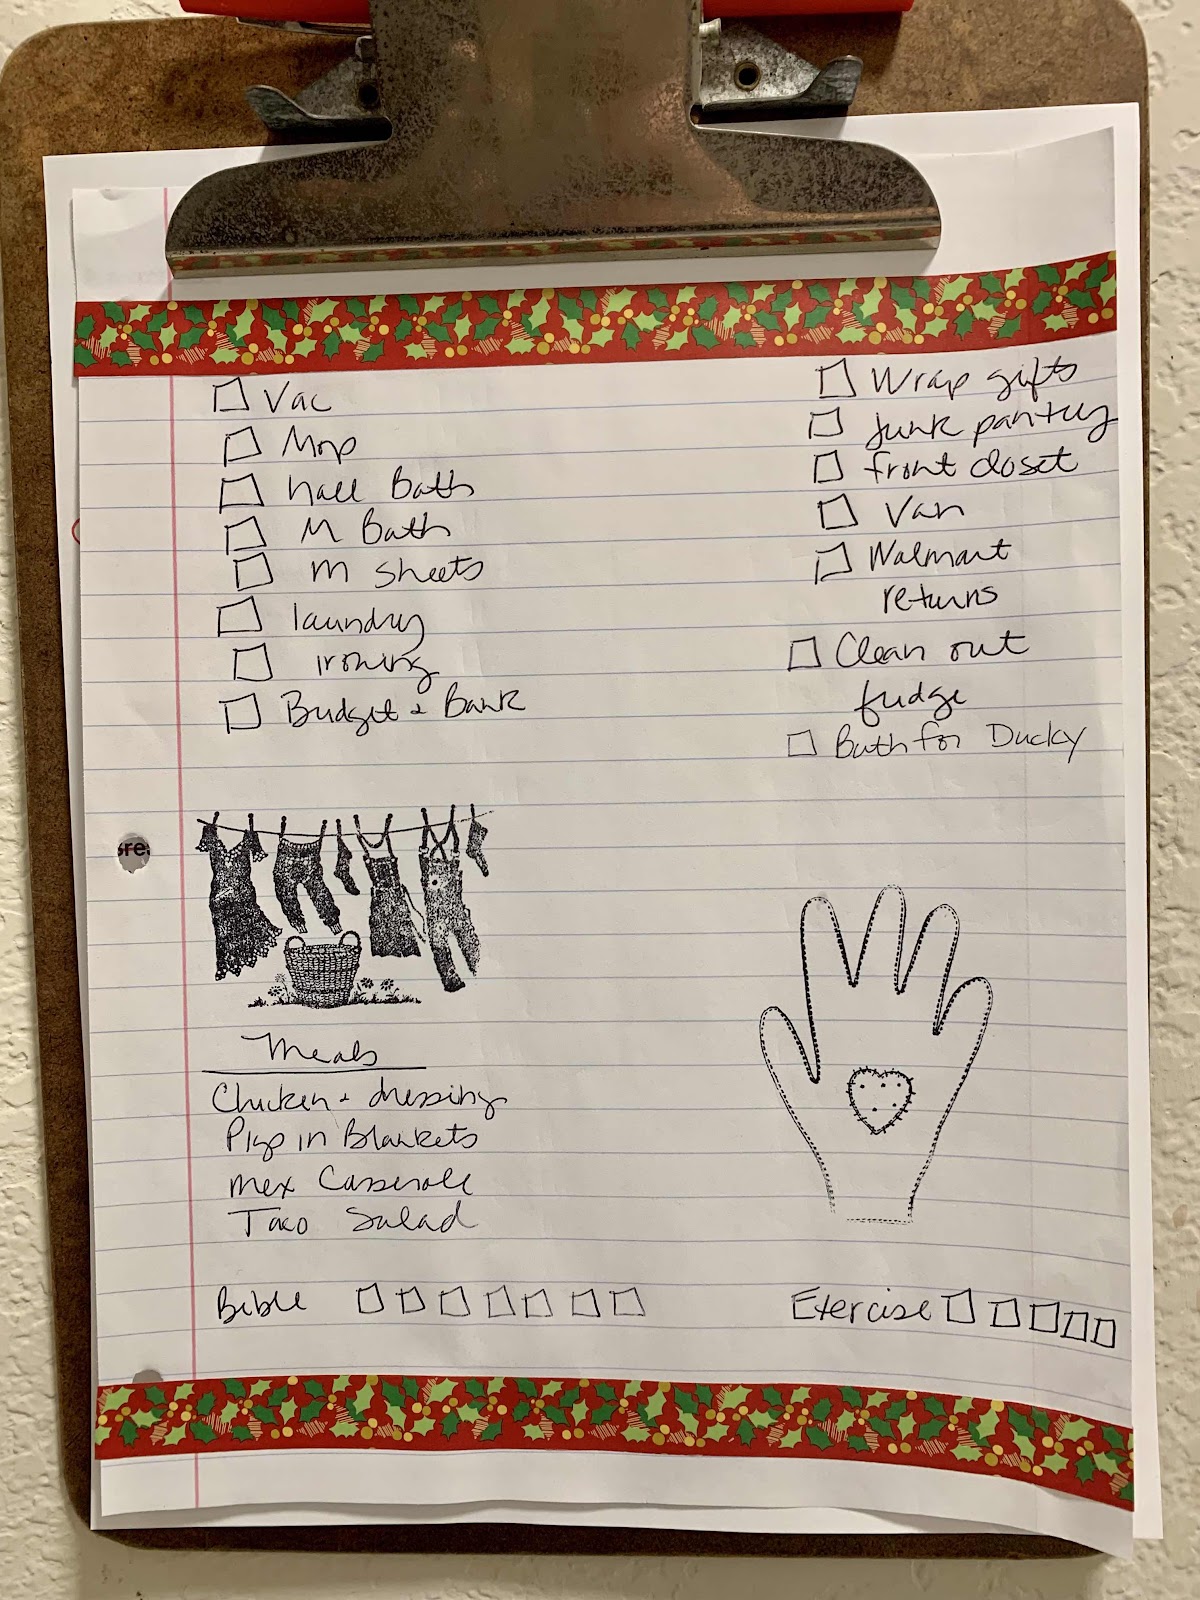 Vac
Mop
hall Bath
M Bath
M sheets
laundry
ironing
Budget & Bank
Wrap gifts
junk pantry
front closet
Van
Walmart
returns
Clean out
fudge
Bath for Ducky
Meals
Chicken & dressing
Pigs in Blankets
Mex Casserole
Taco Salad
Bible
Exercise